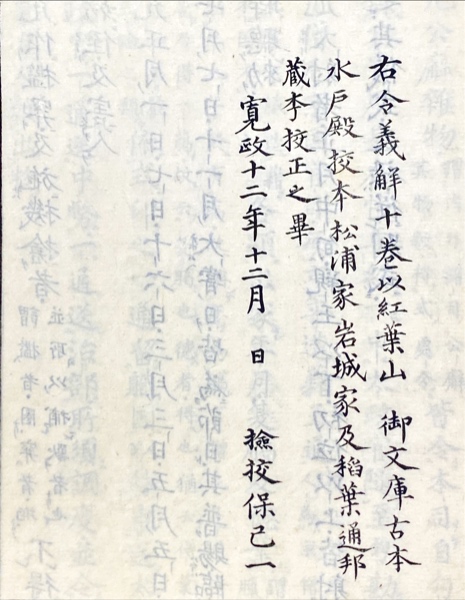 右令義解十巻以紅葉山 御文庫古本
水戸殿挍本松浦家岩城家及稻葉通邦
蔵本挍正之畢
寛政十二年十二月 日 撿挍保己一